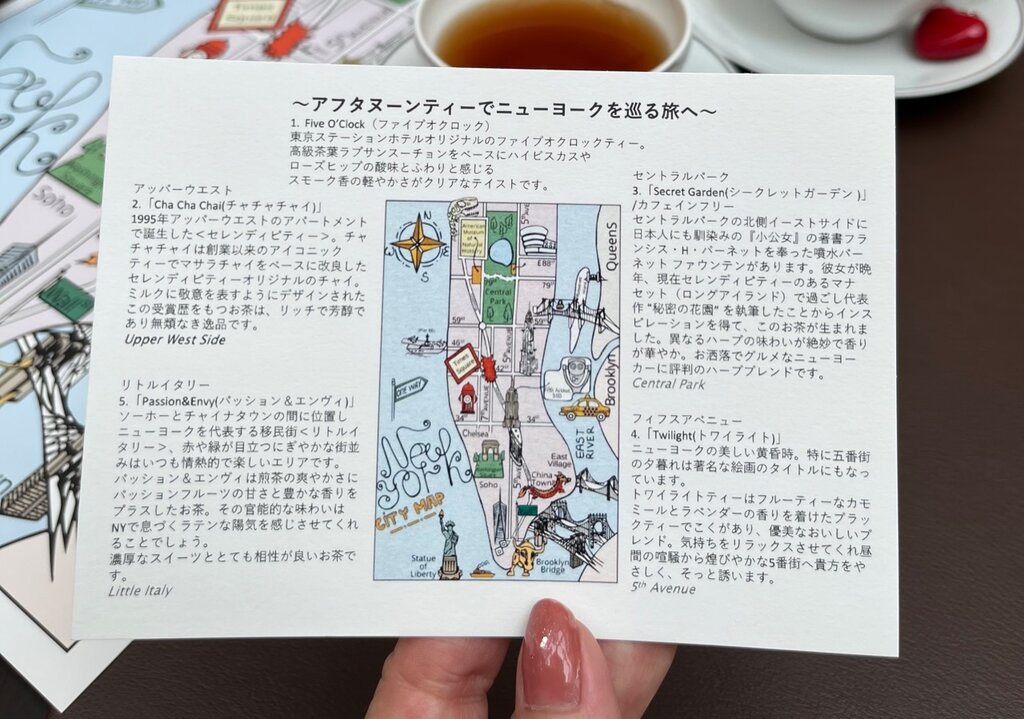 ～アフタヌーンティーでニューヨークを巡る旅へ～
1. Five O’Clock（ファイブオクロック）
東京ステーションホテルオリジナルのファイブオクロックティー。
高級茶葉ラプサンスーチョンをベースにハイビスカスや
ローズヒップの酸味とふわりと感じる
スモーク香の軽やかさがクリアなテイストです。
アッパーウエスト
2.「Cha Cha Chai(チャチャチャイ)」
1995年アッパーウエストのアパートメント
で誕生した＜セレンディピティー＞。チャ
チャチャイは創業以来のアイコニック
ティーでマサラチャイをベースに改良した
セレンディピティーオリジナルのチャイ。
ミルクに敬意を表すようにデザインされた
この受賞歴をもつお茶は、リッチで芳醇で
あり無類なき逸品です。
Upper West Side
セントラルパーク
3.「Secret Garden(シークレットガーデン)」
/カフェインフリー
セントラルパークの北側イーストサイドに
日本人にも馴染みの『小公女』の著書フラ
ンシス・H・バーネットを奉った噴水バー
ネット ファウンテンがあります。彼女が晩
年、現在セレンディピティーのあるマナ
セット（ロングアイランド）で過ごし代表
作 “秘密の花園” を執筆したことからインス
ピレーションを得て、このお茶が生まれま
した。異なるハーブの味わいが絶妙で香り
が華やか。お洒落でグルメなニューヨー
カーに評判のハーブブレンドです。
Central Park
フィフスアベニュー
4.「Twilight(トワイライト)」
ニューヨークの美しい黄昏時。特に五番街
の夕暮れは著名な絵画のタイトルにもなっ
ています。
トワイライトティーはフルーティーなカモ
ミールとラベンダーの香りを着けたブラッ
クティーでこくがあり、優美なおいしいブ
レンド。気持ちをリラックスさせてくれ昼
間の喧騒から煌びやかな5番街へ貴方をや
さしく、そっと誘います。
5th Avenue
リトルイタリー
5.「Passion&Envy(パッション＆エンヴィ)」
ソーホーとチャイナタウンの間に位置し
ニューヨークを代表する移民街＜リトルイ
タリー＞、赤や緑が目立つにぎやかな街並
みはいつも情熱的で楽しいエリアです。
パッション＆エンヴィは煎茶の爽やかさに
パッションフルーツの甘さと豊かな香りを
プラスしたお茶。その官能的な味わいは
NYで息づくラテンな陽気を感じさせてくれ
ることでしょう。
濃厚なスイーツととても相性が良いお茶で
す。
Little Italy
N
S
American
Museum
of
Natural
History
Central
Park
E88
59th
59th
Queens
Times
Square
ONE WAY
7th AVENUE
34th
34th
Chelsea
Brooklyn
EAST
RIVER
East
Village
China
Town
Soho
New York
CITY MAP
Statue
of
Liberty
Brooklyn
Bridge
Times
Square
Soho